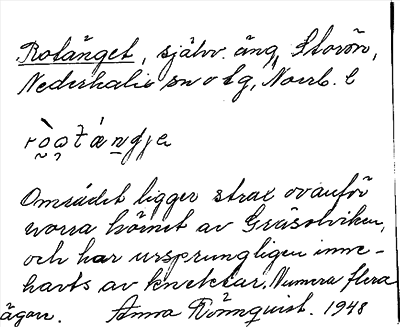 Rotänget, självr. äng, Storön,
Nederkalix sn o tg, Norrb. l
Området ligger strax ovanför
norra hörnet av Gräsötviken,
och har ursprungligen inne-
hafts av knektar. Numera flera
ägare. Anna Rönnquist. 1948